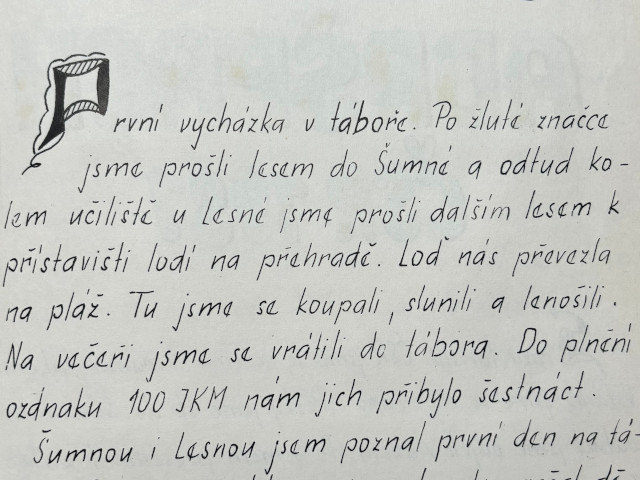 První vycházka v táboře. Po žluté značce
jsme prošli lesem do Šumné a odtud ko-
lem učiliště u Lesné jsme prošli dalším lesem k
přístavišti lodí na přehradě. Loď nás převezla
na pláž. Tu jsme se koupali, slunili a lenošili.
Na večeři jsme se vrátili do tábora. Do plnění
ozdnaku 100 JKM nám jich přibylo šestnáct.
Šumnou i Lesnou jsem poznal první den na tá-